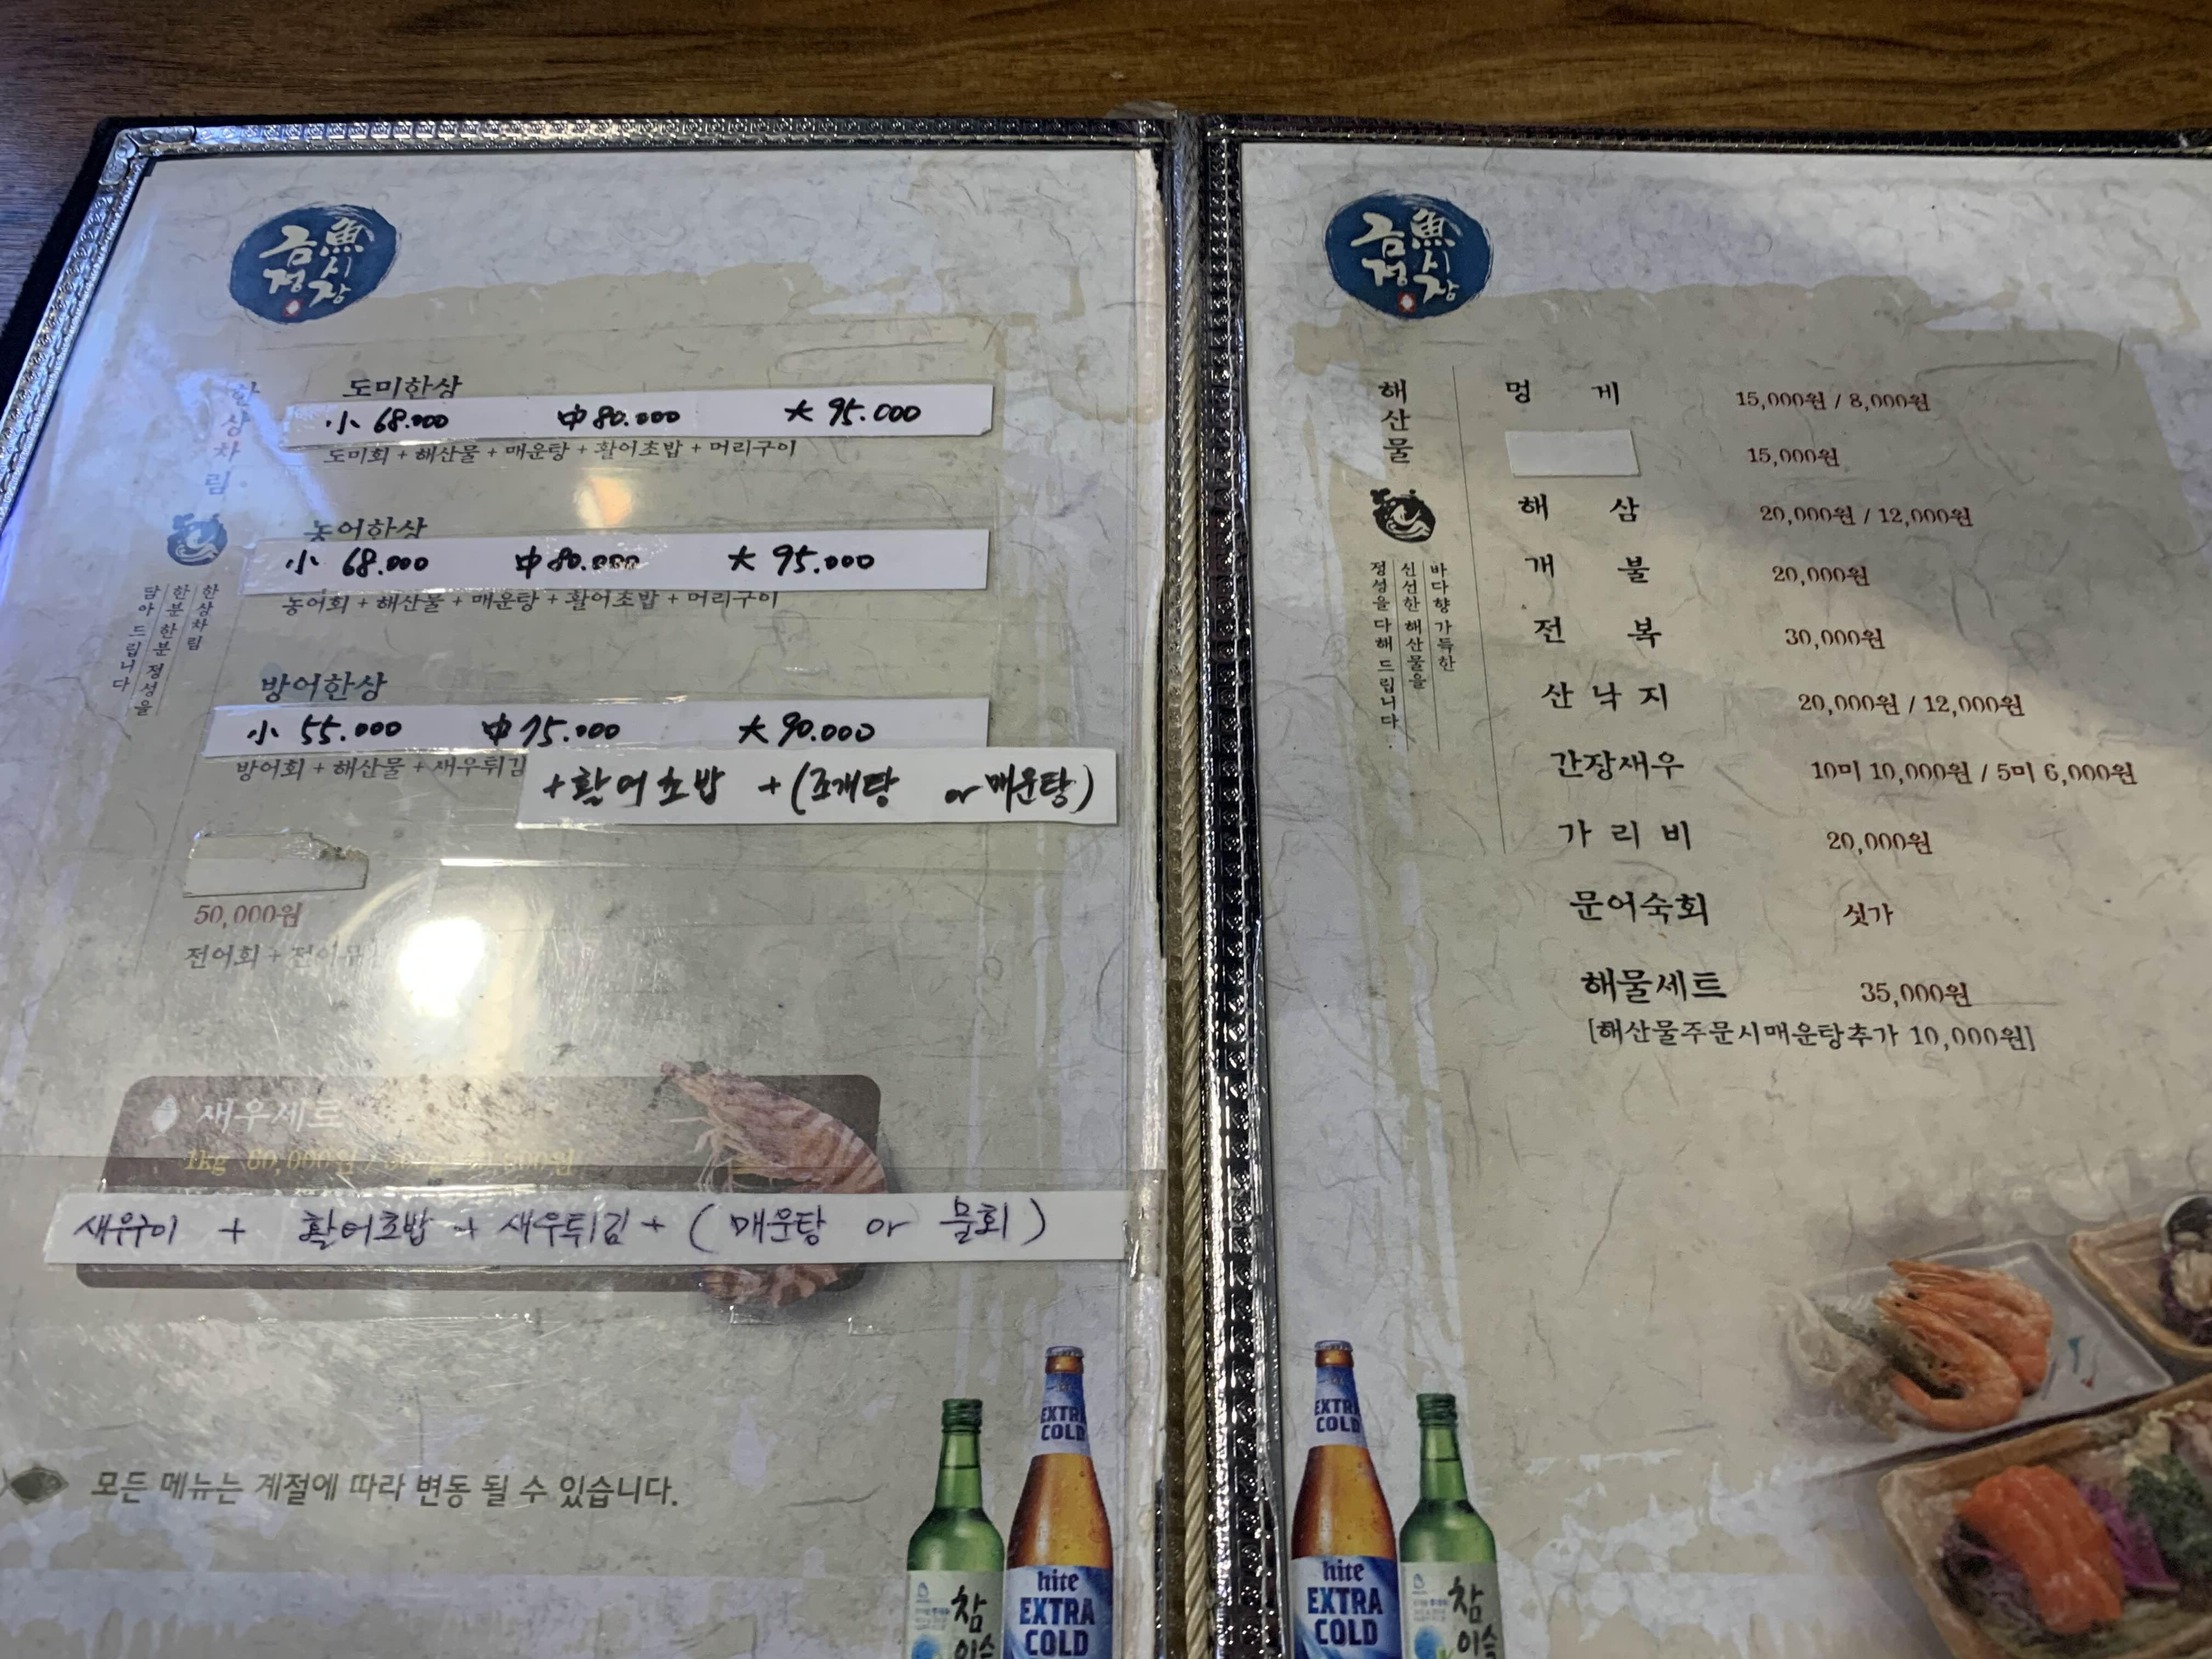 금정
魚시장
한상차림
한상차림
한분 한분 정성을
담아 드립니다
도미한상
小 68.000 中 80.000 大 95.000
도미회 + 해산물 + 매운탕 + 활어초밥 + 머리구이
농어한상
小 68.000 中 80.000 大 95.000
농어회 + 해산물 + 매운탕 + 활어초밥 + 머리구이
방어한상
小 55.000 中 75.000 大 90.000
방어회 + 해산물 + 새우튀김
+ 활어초밥 + (조개탕 or 매운탕)
50,000원
전어회 +
새우세트
1kg
새우구이 + 활어초밥 + 새우튀김 + ( 매운탕 or 물회 )
모든 메뉴는 계절에 따라 변동 될 수 있습니다.
EXTRA
COLD
hite
EXTRA
COLD
참
이슬
금정
魚시장
해산물
바다향 가득한
신선한 해산물을
정성을 다해 드립니다.
멍게 15,000원 / 8,000원
15,000원
해삼 20,000원 / 12,000원
개불 20,000원
전복 30,000원
산낙지 20,000원 / 12,000원
간장새우 10미 10,000원 / 5미 6,000원
가리비 20,000원
문어숙회 싯가
해물세트 35,000원
[해산물주문시매운탕추가 10,000원]
EXTRA
COLD
hite
EXTRA
COLD
참
이슬